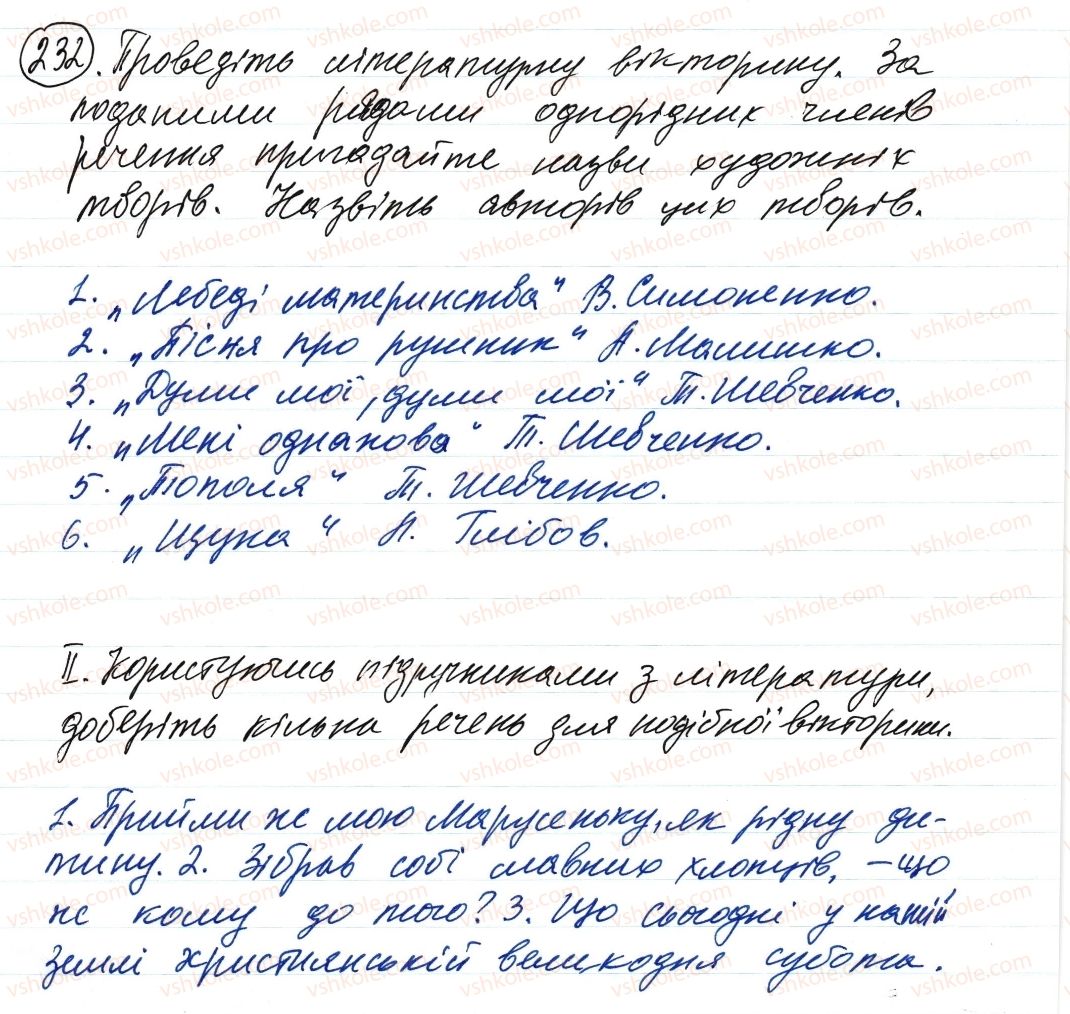 232. Проведіть літературну вікторину. За
поданими рядами однорідних членів
речення пригадайте назви художніх
творів. Назвіть авторів цих творів.
1. „Лебеді материнства" В. Симоненко.
2. „Пісня про рушник" А. Малишко.
3. „Думи мої, думи мої" Т. Шевченко.
4. „Мені однаково" Т. Шевченко.
5. „Тополя" Т. Шевченко.
6. „Щука" Л. Глібов.
II. Користуючись підручниками з літератури,
доберіть кілька речень для подібної вікторини.
1. Прийми ж мою Марусеньку, як рідну ди-
тину. 2. Зібрав собі славних хлопців, – що
ж кому до того? 3. Що сьогодні у нашій
землі християнській великодня субота.
vshkole.com